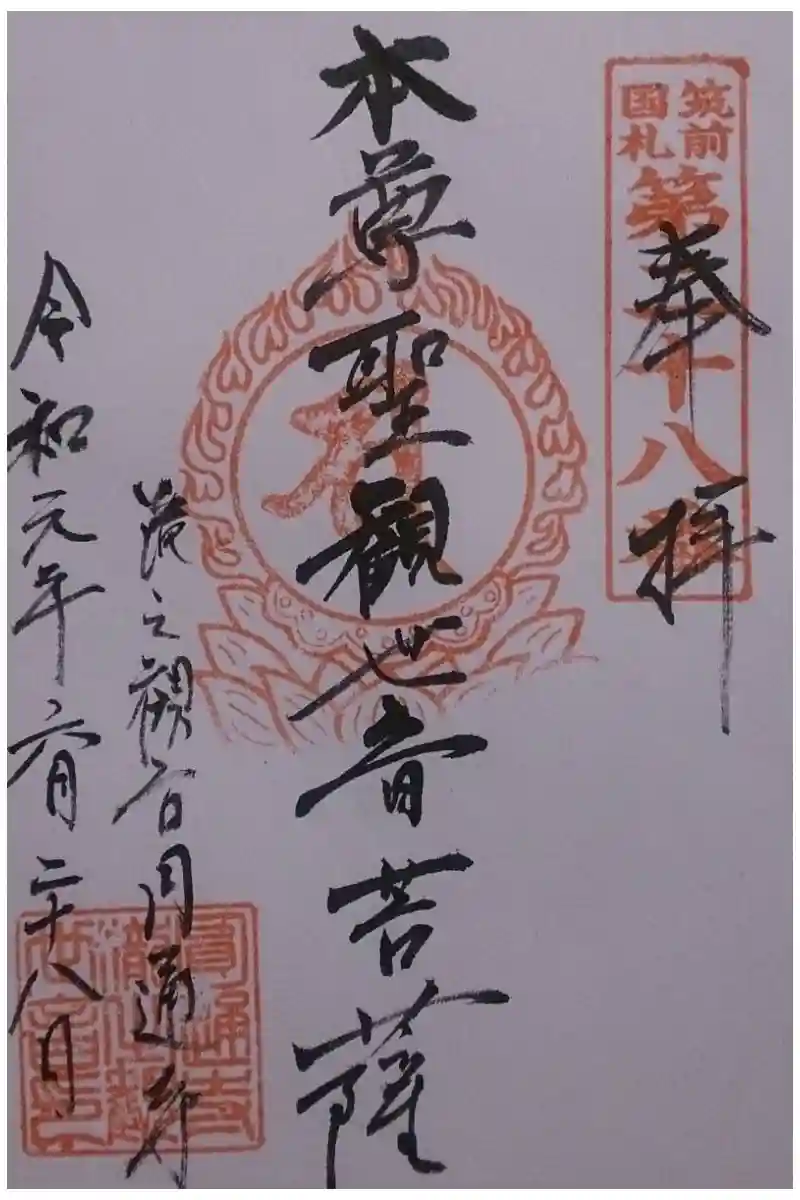 筑前
国札
第十八番
奉拝
本尊聖観世音菩薩
滝之観音円通寺
令和元年六月二十八日